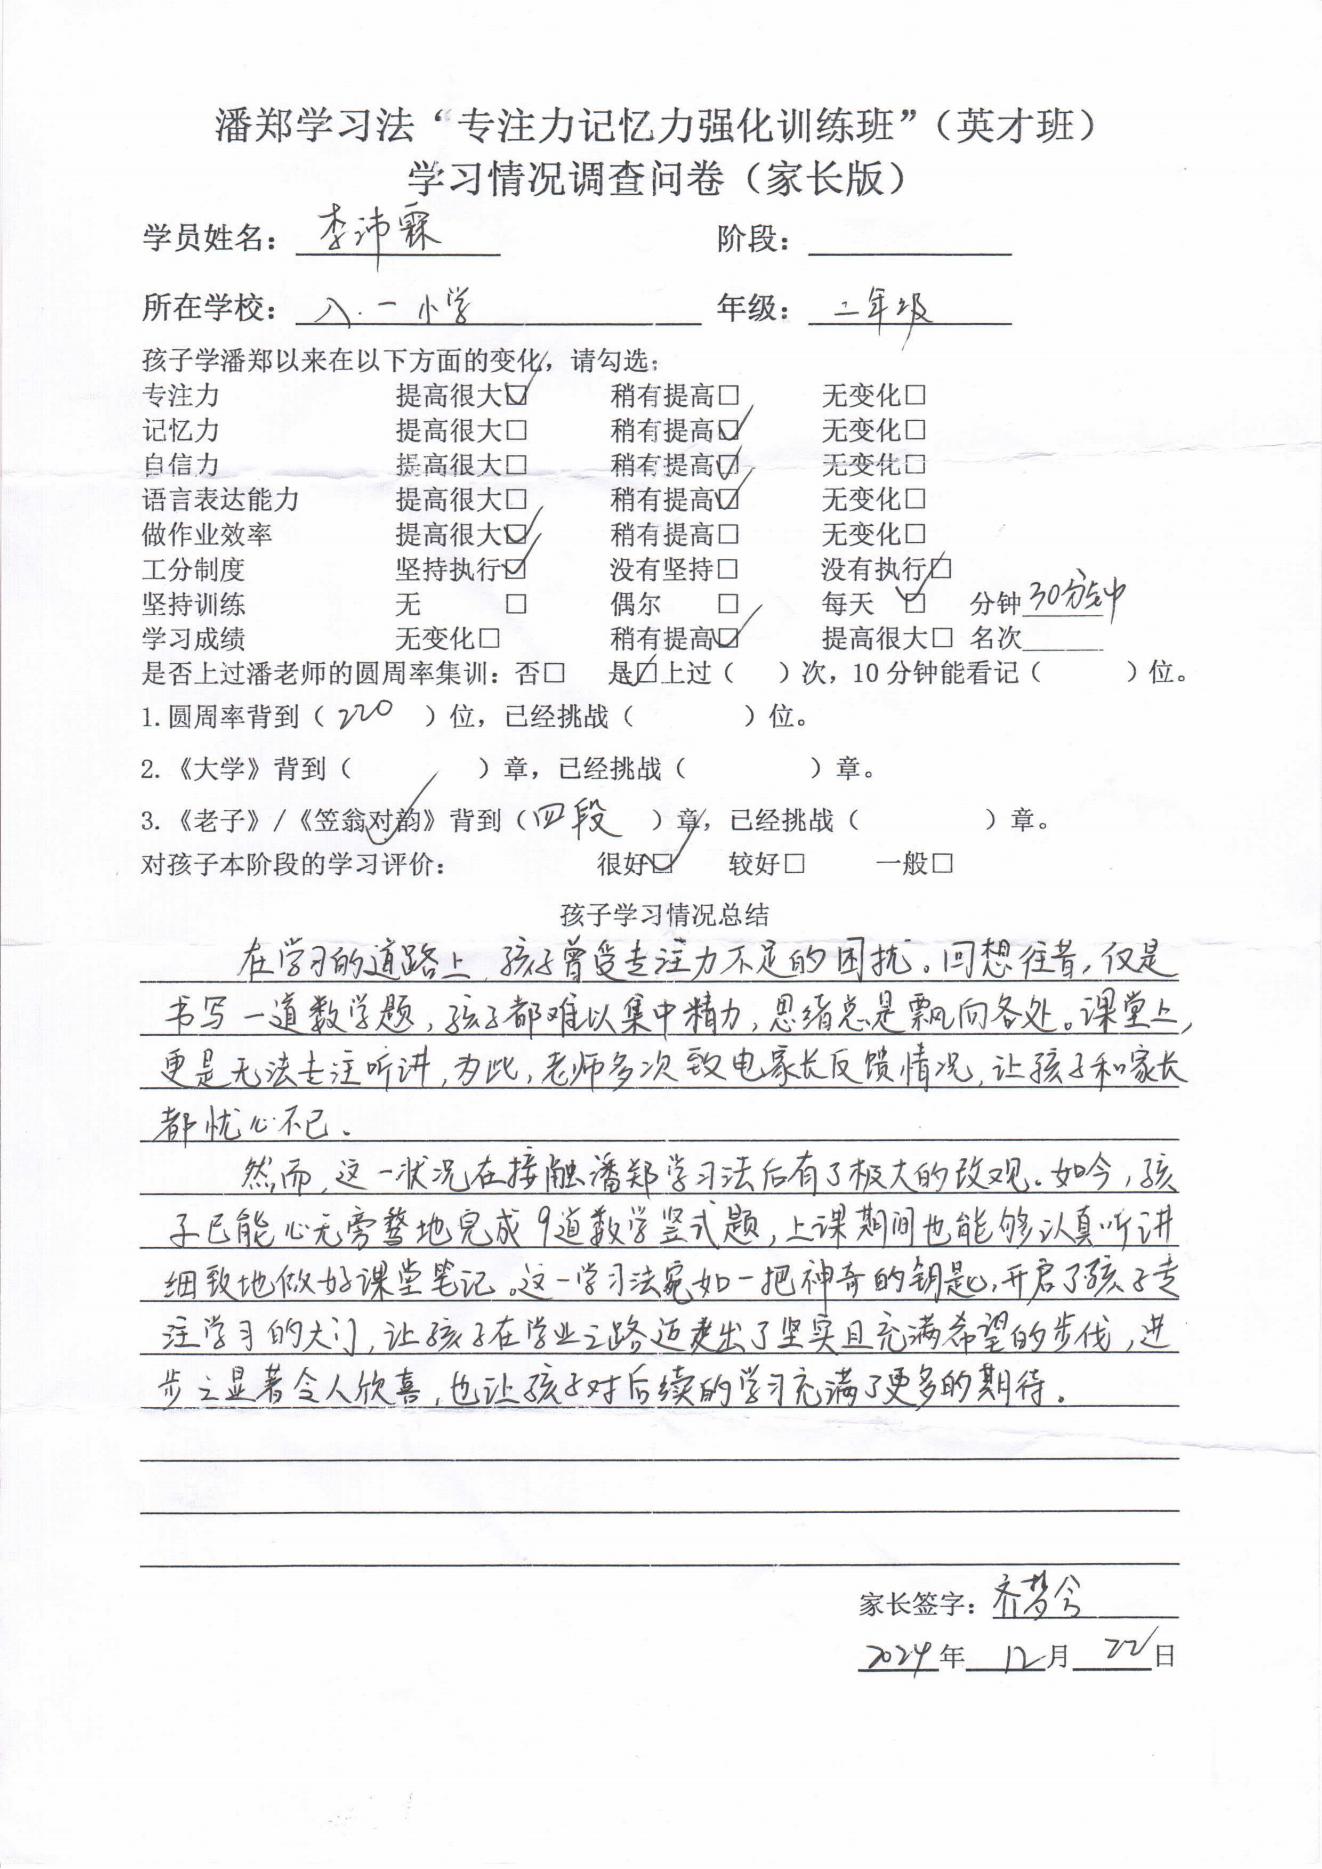 潘郑学习法“专注力记忆力强化训练班”（英才班）
学习情况调查问卷（家长版）
学员姓名：李沛霖 阶段：
所在学校：八.一小学 年级：二年级
孩子学潘郑以来在以下方面的变化，请勾选：
专注力 提高很大☑ 稍有提高□ 无变化□
记忆力 提高很大□ 稍有提高☑ 无变化□
自信力 提高很大□ 稍有提高☑ 无变化□
语言表达能力 提高很大□ 稍有提高☑ 无变化□
做作业效率 提高很大☑ 稍有提高□ 无变化□
工分制度 坚持执行☑ 没有坚持□ 没有执行□
坚持训练 无 □ 偶尔 □ 每天 ☑ 分钟30分钟
学习成绩 无变化□ 稍有提高☑ 提高很大□ 名次
是否上过潘老师的圆周率集训：否□ 是☑上过（ ）次，10分钟能看记（ ）位。
1.圆周率背到（220 ）位，已经挑战（ ）位。
2.《大学》背到（ ）章，已经挑战（ ）章。
3.《老子》/《笠翁对韵》背到（四段 ）章，已经挑战（ ）章。
对孩子本阶段的学习评价： 很好☑ 较好□ 一般□
孩子学习情况总结
在学习的道路上，孩子曾受专注力不足的困扰。回想往昔，仅是
书写一道数学题，孩子都难以集中精力，思绪总是飘向各处。课堂上，
更是无法专注听讲，为此，老师多次致电家长反馈情况，让孩子和家长
都忧心不已。
然而，这一状况在接触潘郑学习法后有了极大的改观。如今，孩
子已能心无旁骛地完成9道数学竖式题，上课期间也能够认真听讲
细致地做好课堂笔记。这一学习法宛如一把神奇的钥匙，开启了孩子专
注学习的大门，让孩子在学业之路迈出了坚实且充满希望的步伐，进
步之显著令人欣喜，也让孩子对后续的学习充满了更多的期待。
家长签字：齐梦兮
2024年 12月 22日